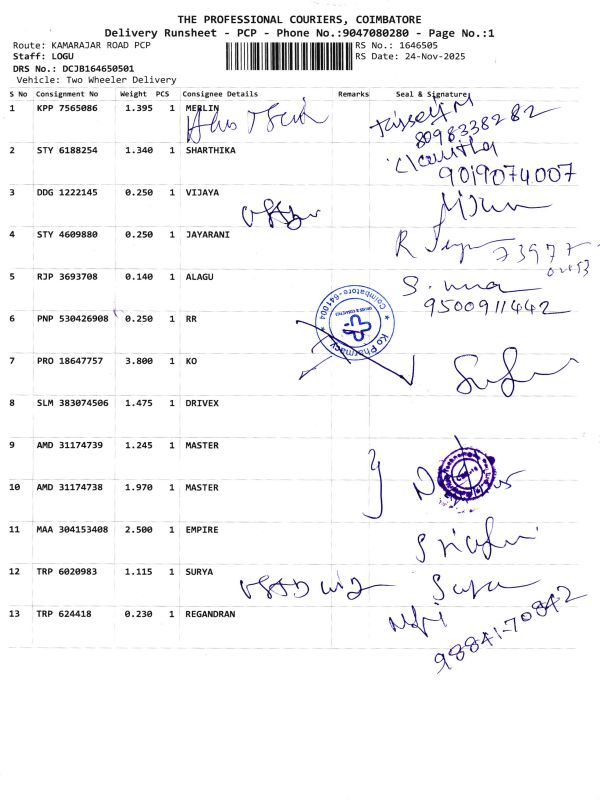 THE PROFESSIONAL COURIERS, COIMBATORE
Delivery Runsheet - PCP - Phone No.:9047080280 - Page No.:1
Route: KAMARAJAR ROAD PCP RS No.: 1646505
Staff: LOGU RS Date: 24-Nov-2025
DRS No.: DCJB164650501
Vehicle: Two Wheeler Delivery
S No Consignment No Weight PCS Consignee Details Remarks Seal & Signature
1 KPP 7565086 1.395 1 MERLIN
8098338282
2 STY 6188254 1.340 1 SHARTHIKA
9019074007
3 DDG 1222145 0.250 1 VIJAYA
4 STY 4609880 0.250 1 JAYARANI
R 73977
5 RJP 3693708 0.140 1 ALAGU
9500911442
6 PNP 530426908 0.250 1 RR
Coimbatore-641004
Ko Pharmacy
7 PRO 18647757 3.800 1 KO
8 SLM 383074506 1.475 1 DRIVEX
9 AMD 31174739 1.245 1 MASTER
10 AMD 31174738 1.970 1 MASTER
11 MAA 304153408 2.500 1 EMPIRE
12 TRP 6020983 1.115 1 SURYA
13 TRP 624418 0.230 1 REGANDRAN
98841-70842